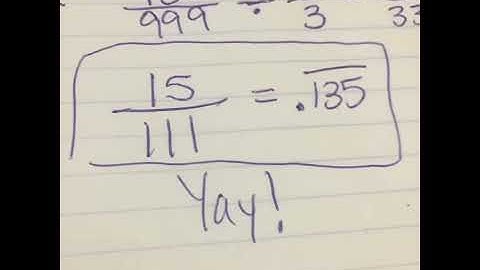 999 ÷ 3 33
15/111 = .1̅3̅5̅
Yay!